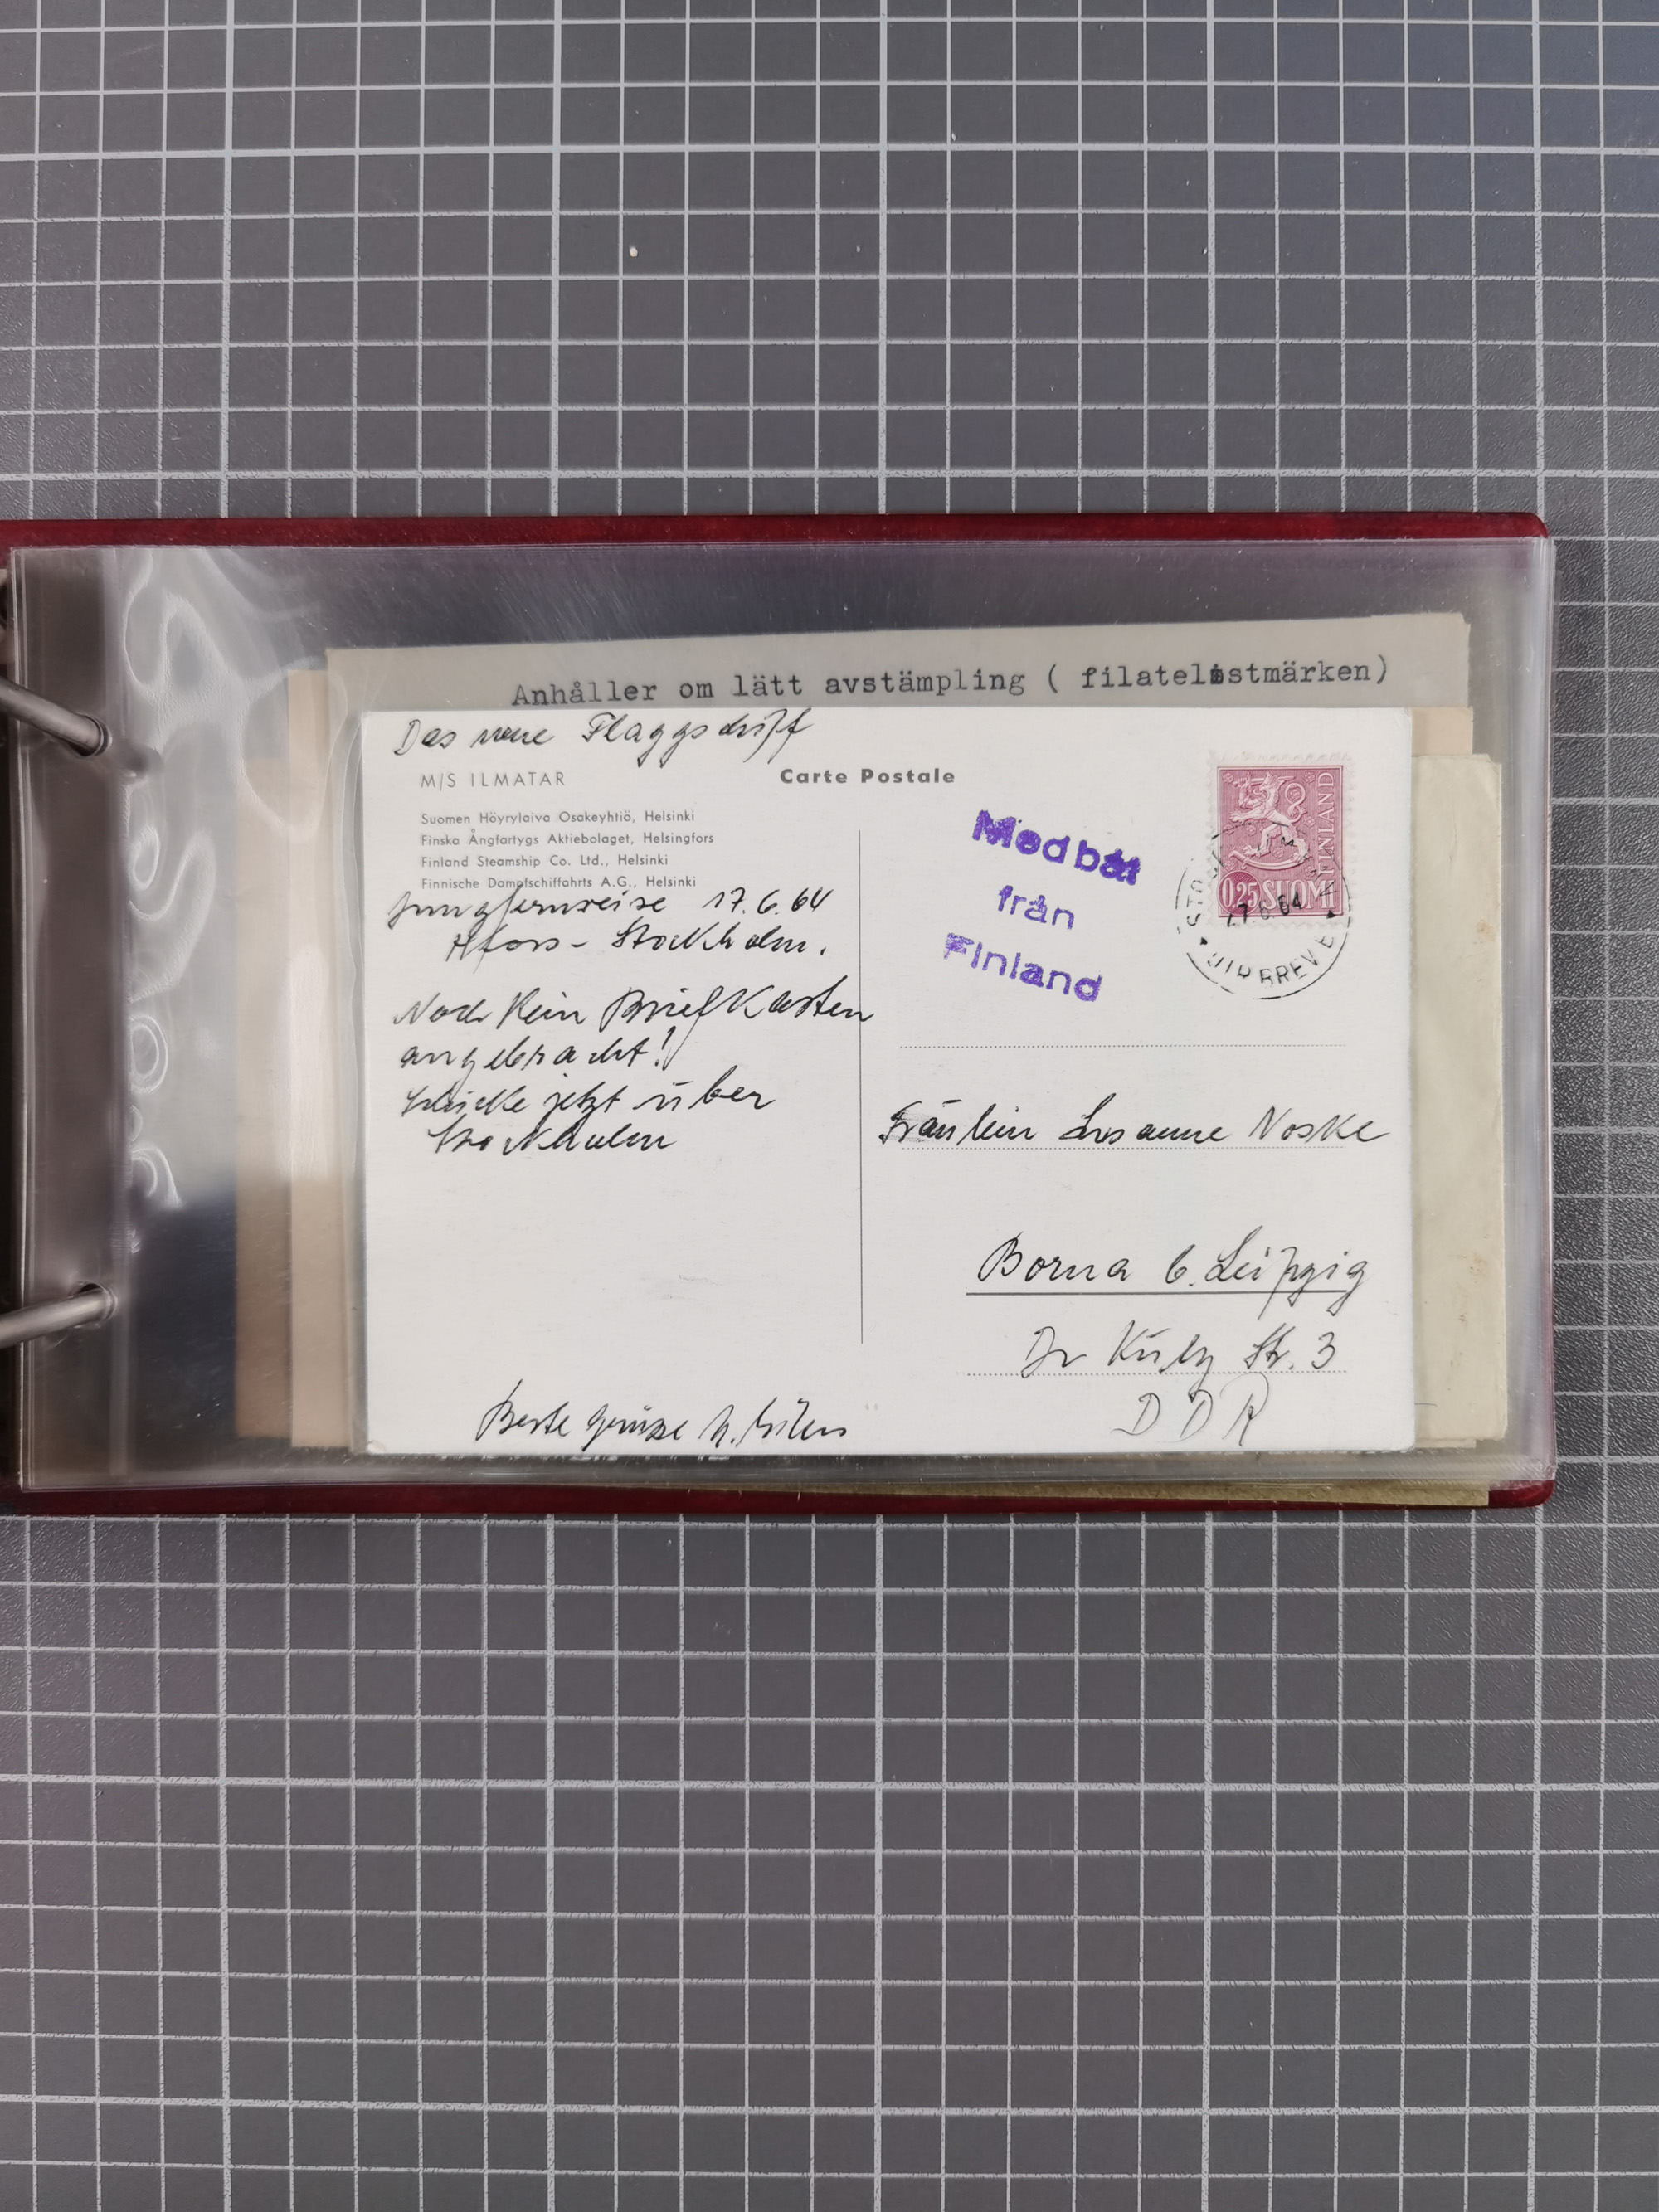 Anhåller om lätt avstämpling ( filatelistmärken)
Das neue Flaggschiff
M/S ILMATAR
Carte Postale
Suomen Höyrylaiva Osakeyhtiö, Helsinki
Finska Ångfartygs Aktiebolaget, Helsingfors
Finland Steamship Co. Ltd., Helsinki
Finnische Dampfschiffahrts A.G., Helsinki
Jungfernreise 17.6.64
Hfors - Stockholm.
Noch kein Briefkasten
angebracht!
schicke jetzt über
Stockholm
Beste Grüsse H.
Med båt
från
Finland
FINLAND
0,25 SUOMI
17 6 64
AVBREV
Fräulein Susanne Noske
Borna b. Leipzig
Dr Külz Str. 3
DDR